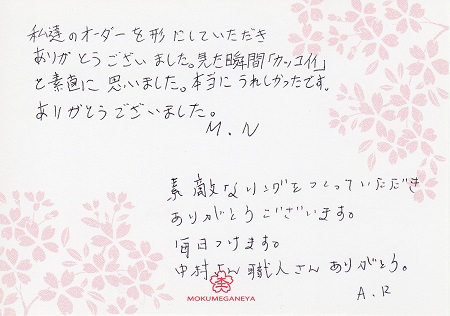 私達のオーダーを形にしていただき
ありがとうございました。見た瞬間「カッコイイ」
と素直に思いました。本当にうれしかったです。
ありがとうございました。
M.N
素敵なリングをつくっていただき
ありがとうございます。
毎日つけます。
中村さん職人さんありがとう。
A.R
MOKUMEGANEYA